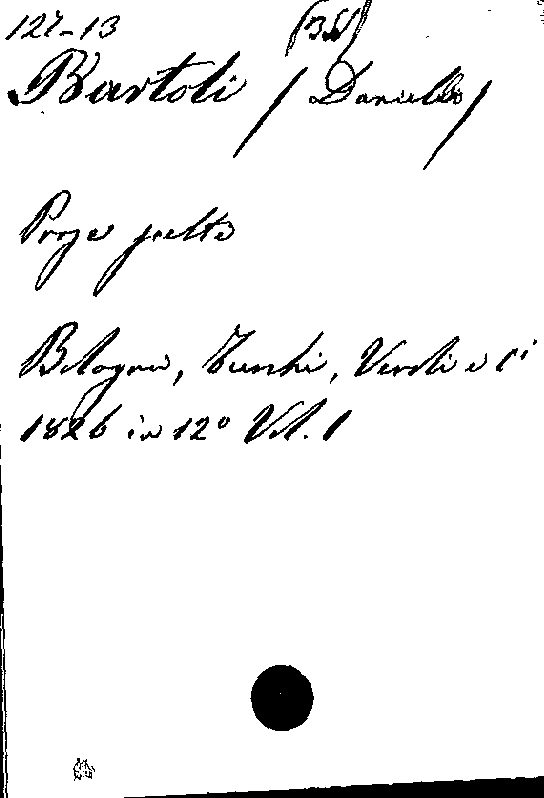 127-13
Bartoli / Daniello /
Prose scelte
Bologna, Turchi, Veroli e Ci
1826 in 12º Vol. 1